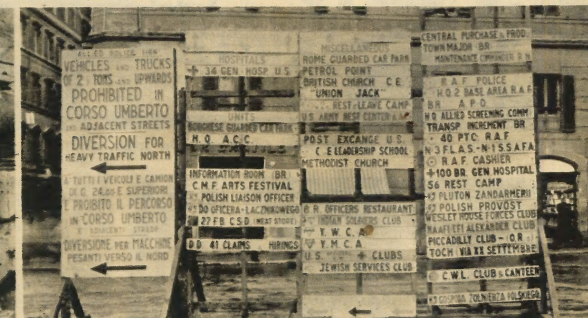 ALLIED POLICE
VEHICLES AND TRUCKS
OF 2 TONS AND UPWARDS
PROHIBITED IN
CORSO UMBERTO
AND ADJACENT STREETS
DIVERSION FOR
HEAVY TRAFFIC NORTH
TUTTI I VEICOLI E CAMION
DI C. 2 E SUPERIORI
PROIBITO IL PERCORSO
IN CORSO UMBERTO
DIVERSIONE PER MACCHINE
PESANTI VERSO IL NORD
HOSPITALS
34 GEN. HOSP. U.S
UNITS
GUARDED CAR PARK
H.Q. A.C.C.
INFORMATION ROOM (BR)
C.M.F. ARTS FESTIVAL
POLISH LIAISON OFFICER
DO OFICERA-LACZNIKOWEGO
27 FB CSD (MEAT STORE)
DD 41 CLAIMS HIRINGS
MISCELLANEOUS
ROME GUARDED CAR PARK
PETROL POINT
BRITISH CHURCH C.E.
"UNION JACK"
REST & LEAVE CAMP
U.S. ARMY REST CENTER
POST EXCANGE U.S.
C.E LEADERSHIP SCHOOL
METHODIST CHURCH
B.R. OFFICERS RESTAURANT
INDIAN SOLDIERS CLUB
Y.W.C.A.
Y.M.C.A.
U.S. CLUBS
JEWISH SERVICES CLUB
CENTRAL PURCHASE & PROD.
TOWN MAJOR BR
MAINTENANCE COMMANDER
R.A.F. POLICE
H.Q. 2 BASE AREA R.A.F.
BR A.P.O.
HQ ALLIED SCREENING COMM
TRANSP INCREMENT BR
40 PTC. R.A.F.
R.A.F. CASHIER
100 BR. GEN HOSPITAL
56 REST CAMP
PLUTON ZANDARMERI
POLISH PROVOST
WESLEY HOUSE FORCES CLUB
ALEXANDER CLUB
PICCADILLY CLUB (OR)
TOCH (VIA XX SETTEMBRE
C.W.L. CLUB & CANTEEN
GOSPODA ZOLNIERZA POLSKIEGO